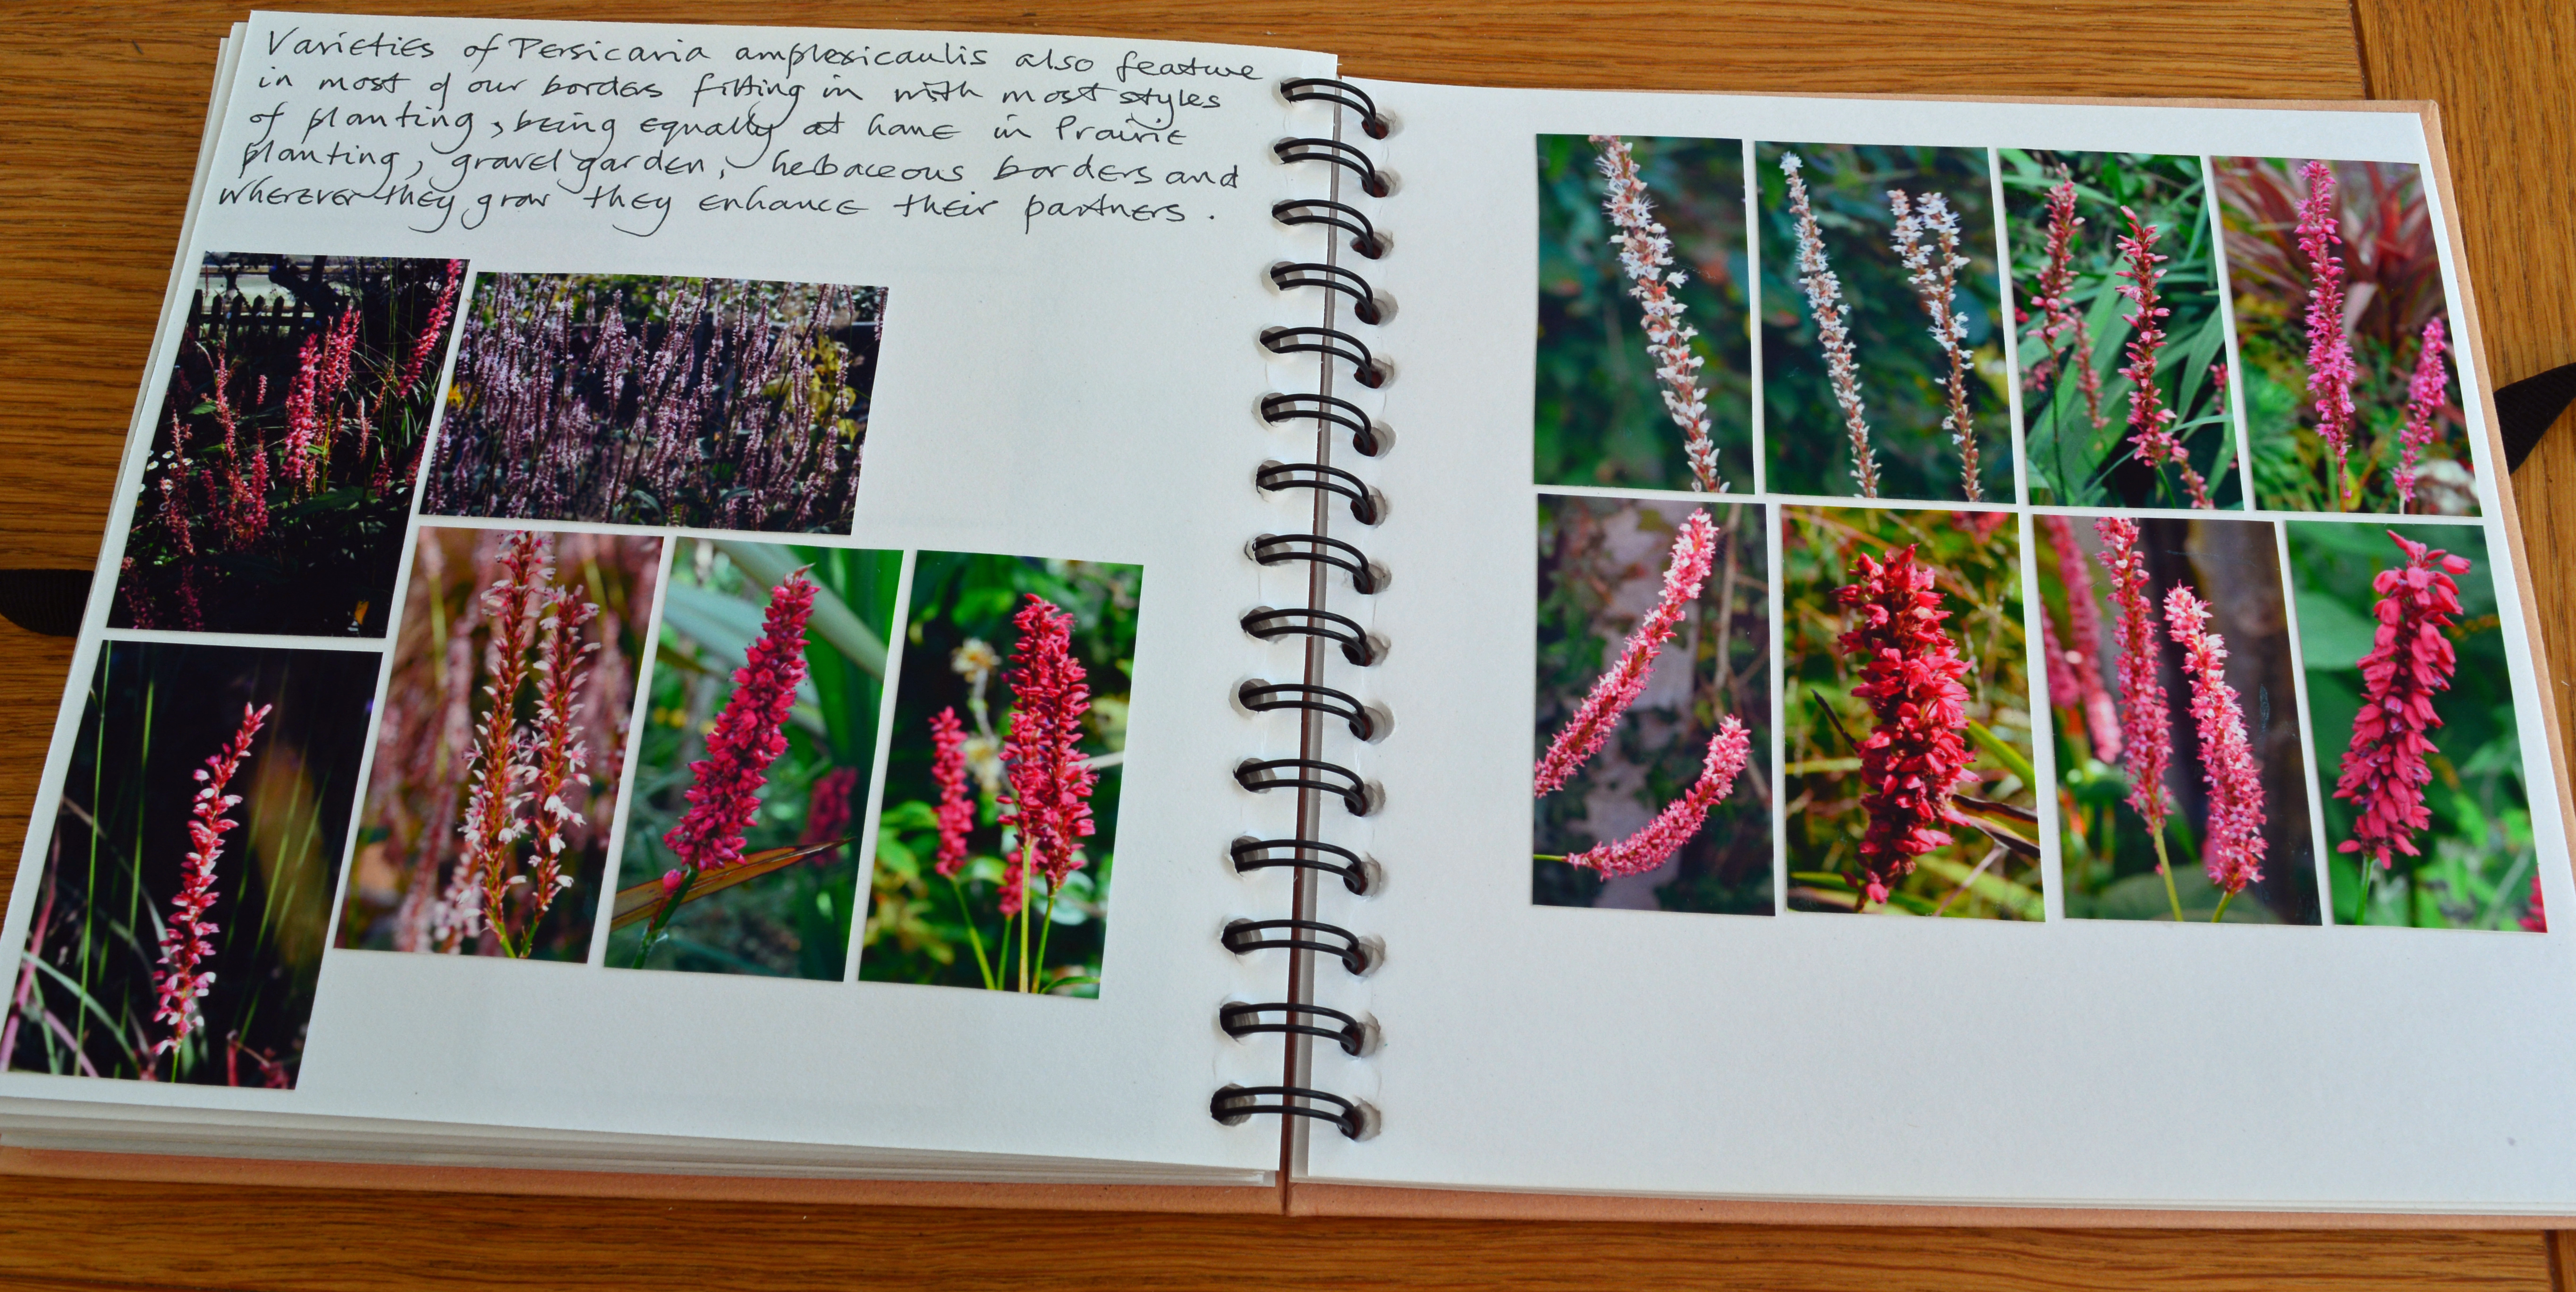 Varieties of Persicaria amplexicaulis also feature
in most of our borders fitting in with most styles
of planting, being equally at home in Prairie
planting, gravel garden, hebaceous borders and
wherever they grow they enhance their partners.